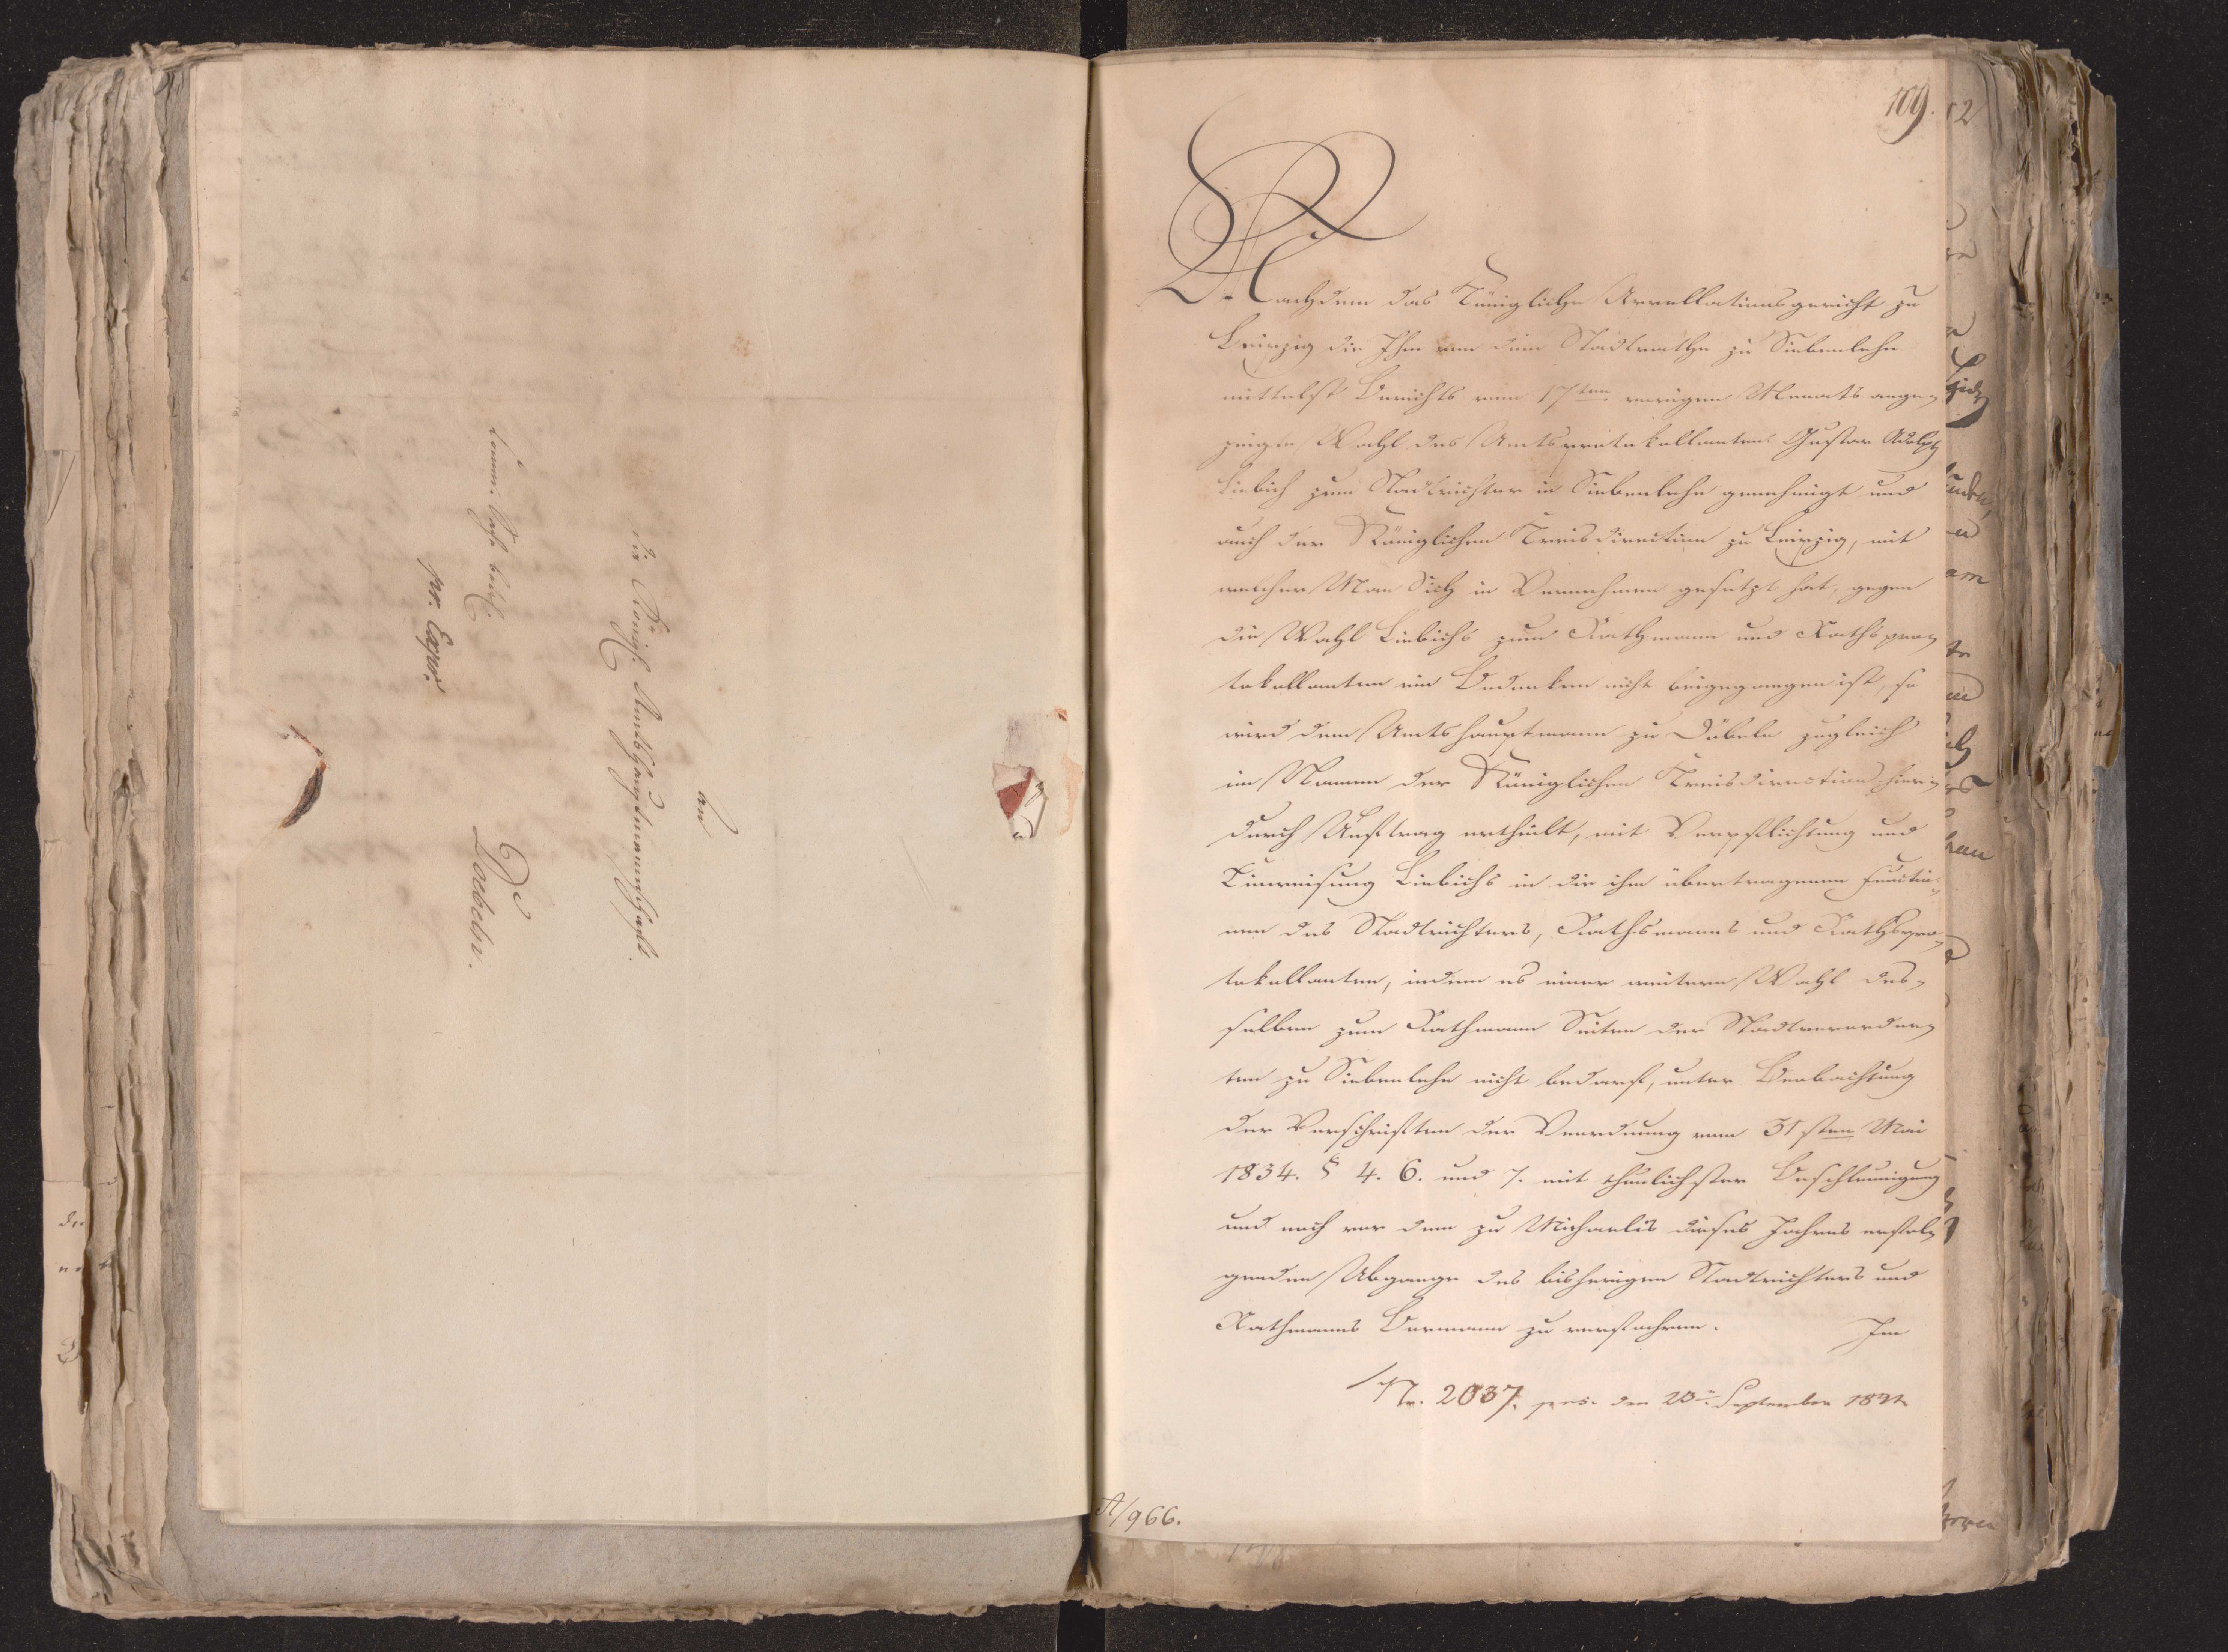 an
die Königl. Amtshauptmannschaft
Doebeln.
pr. Expr.
109.
Nachdem das Königliche Appellationsgericht zu
Leipzig die Ihm von dem Stadtrathe zu Siebenlehn
mittelst Berichts vom 17ten vorigen Monats ange-
zeigte Wahl des Amtsprotokollanten Gustav Adolph
Liebich zum Stadtrichter in Siebenlehn genehmigt und
auch der Königlichen Kreisdirection zu Leipzig, mit
welcher Man Sich in Vernehmen gesetzt hat, gegen
die Wahl Liebichs zum Rathmann und Rathspro-
tokollanten ein Bedenken nicht beigegangen ist, so
wird dem Amtshauptmann zu Döbeln zugleich
im Namen der Königlichen Kreisdirection hier-
durch Auftrag ertheilt, mit Verpflichtung und
Einweisung Liebichs in die ihm übertragenen Functio-
nen des Stadtrichters, Rathsmanns und Rathspro-
tokollanten, indem es einer weitern Wahl des-
selben zum Rathmann Seiten der Stadtverordne-
ten zu Siebenlehn nicht bedarf, unter Beobachtung
der Vorschriften der Verordnung vom 31sten Mai
1834. § 4. 6. und 7. mit thunlichster Beschleunigung
und noch vor dem zu Michaelis dieses Jahres erfol-
genden Abgange des bisherigen Stadtrichters und
Rathmanns Bormann zu verfahren.
Im
Nr. 2037. praes. den September
A/966.